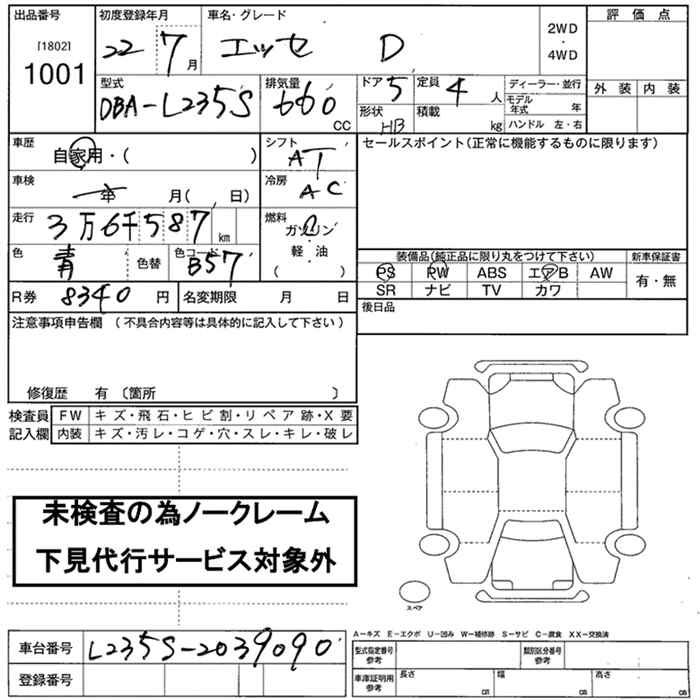 出品番号 初度登録年月 車名・グレード 評価点
[1802] 22 7月 エッセ D 2WD・4WD
1001 外装 内装
型式 排気量 ドア 5 定員 4人 ディーラー・並行
DBA-L235S 660 CC 形状 HB 積載 kg モデル年式 年
ハンドル 左・右
車歴 自家用・( ) シフト AT セールスポイント(正常に機能するものに限ります)
車検 年 月( 日) 冷房 AC
走行 3万6千587km 燃料 ガソリン
色 青 色替 色コード B57 軽・油
( )
装備品(純正品に限り丸をつけて下さい) 新車保証書
PS PW ABS エアB AW 有・無
SR ナビ TV カワ
R券 8340円 名変期限 月 日 後日品
注意事項申告欄 (不具合内容等は具体的に記入して下さい)
修復歴 有 〔箇所 〕
検査員 FW キズ・飛石・ヒビ割・リペア跡・X要
記入欄 内装 キズ・汚レ・コゲ・穴・スレ・キレ・破レ
未検査の為ノークレーム
下見代行サービス対象外
スペア
A-キズ E-エクボ U-凹み W-補修跡 S-サビ C-腐食 XX-交換済
車台番号 L235S-2039090 型式指定番号 参考 類別区分番号 参考
登録番号 車庫証明用 参考 長さ cm 幅 cm 高さ cm